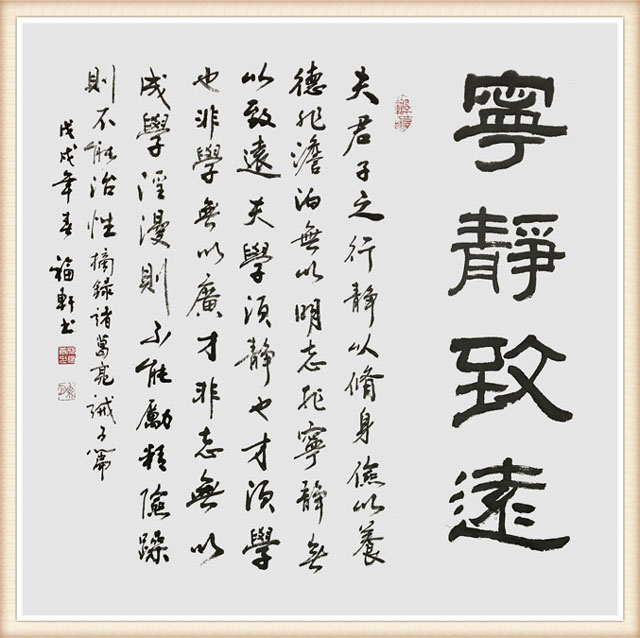 寧靜致遠
夫君子之行靜以脩身儉以養
德非澹泊無以明志非寧靜無
以致遠夫學須靜也才須學
也非學無以廣才非志無以
成學淫漫則不能勵精險躁
則不能治性摘録諸葛亮誡子篇
戊戌年春福軒书